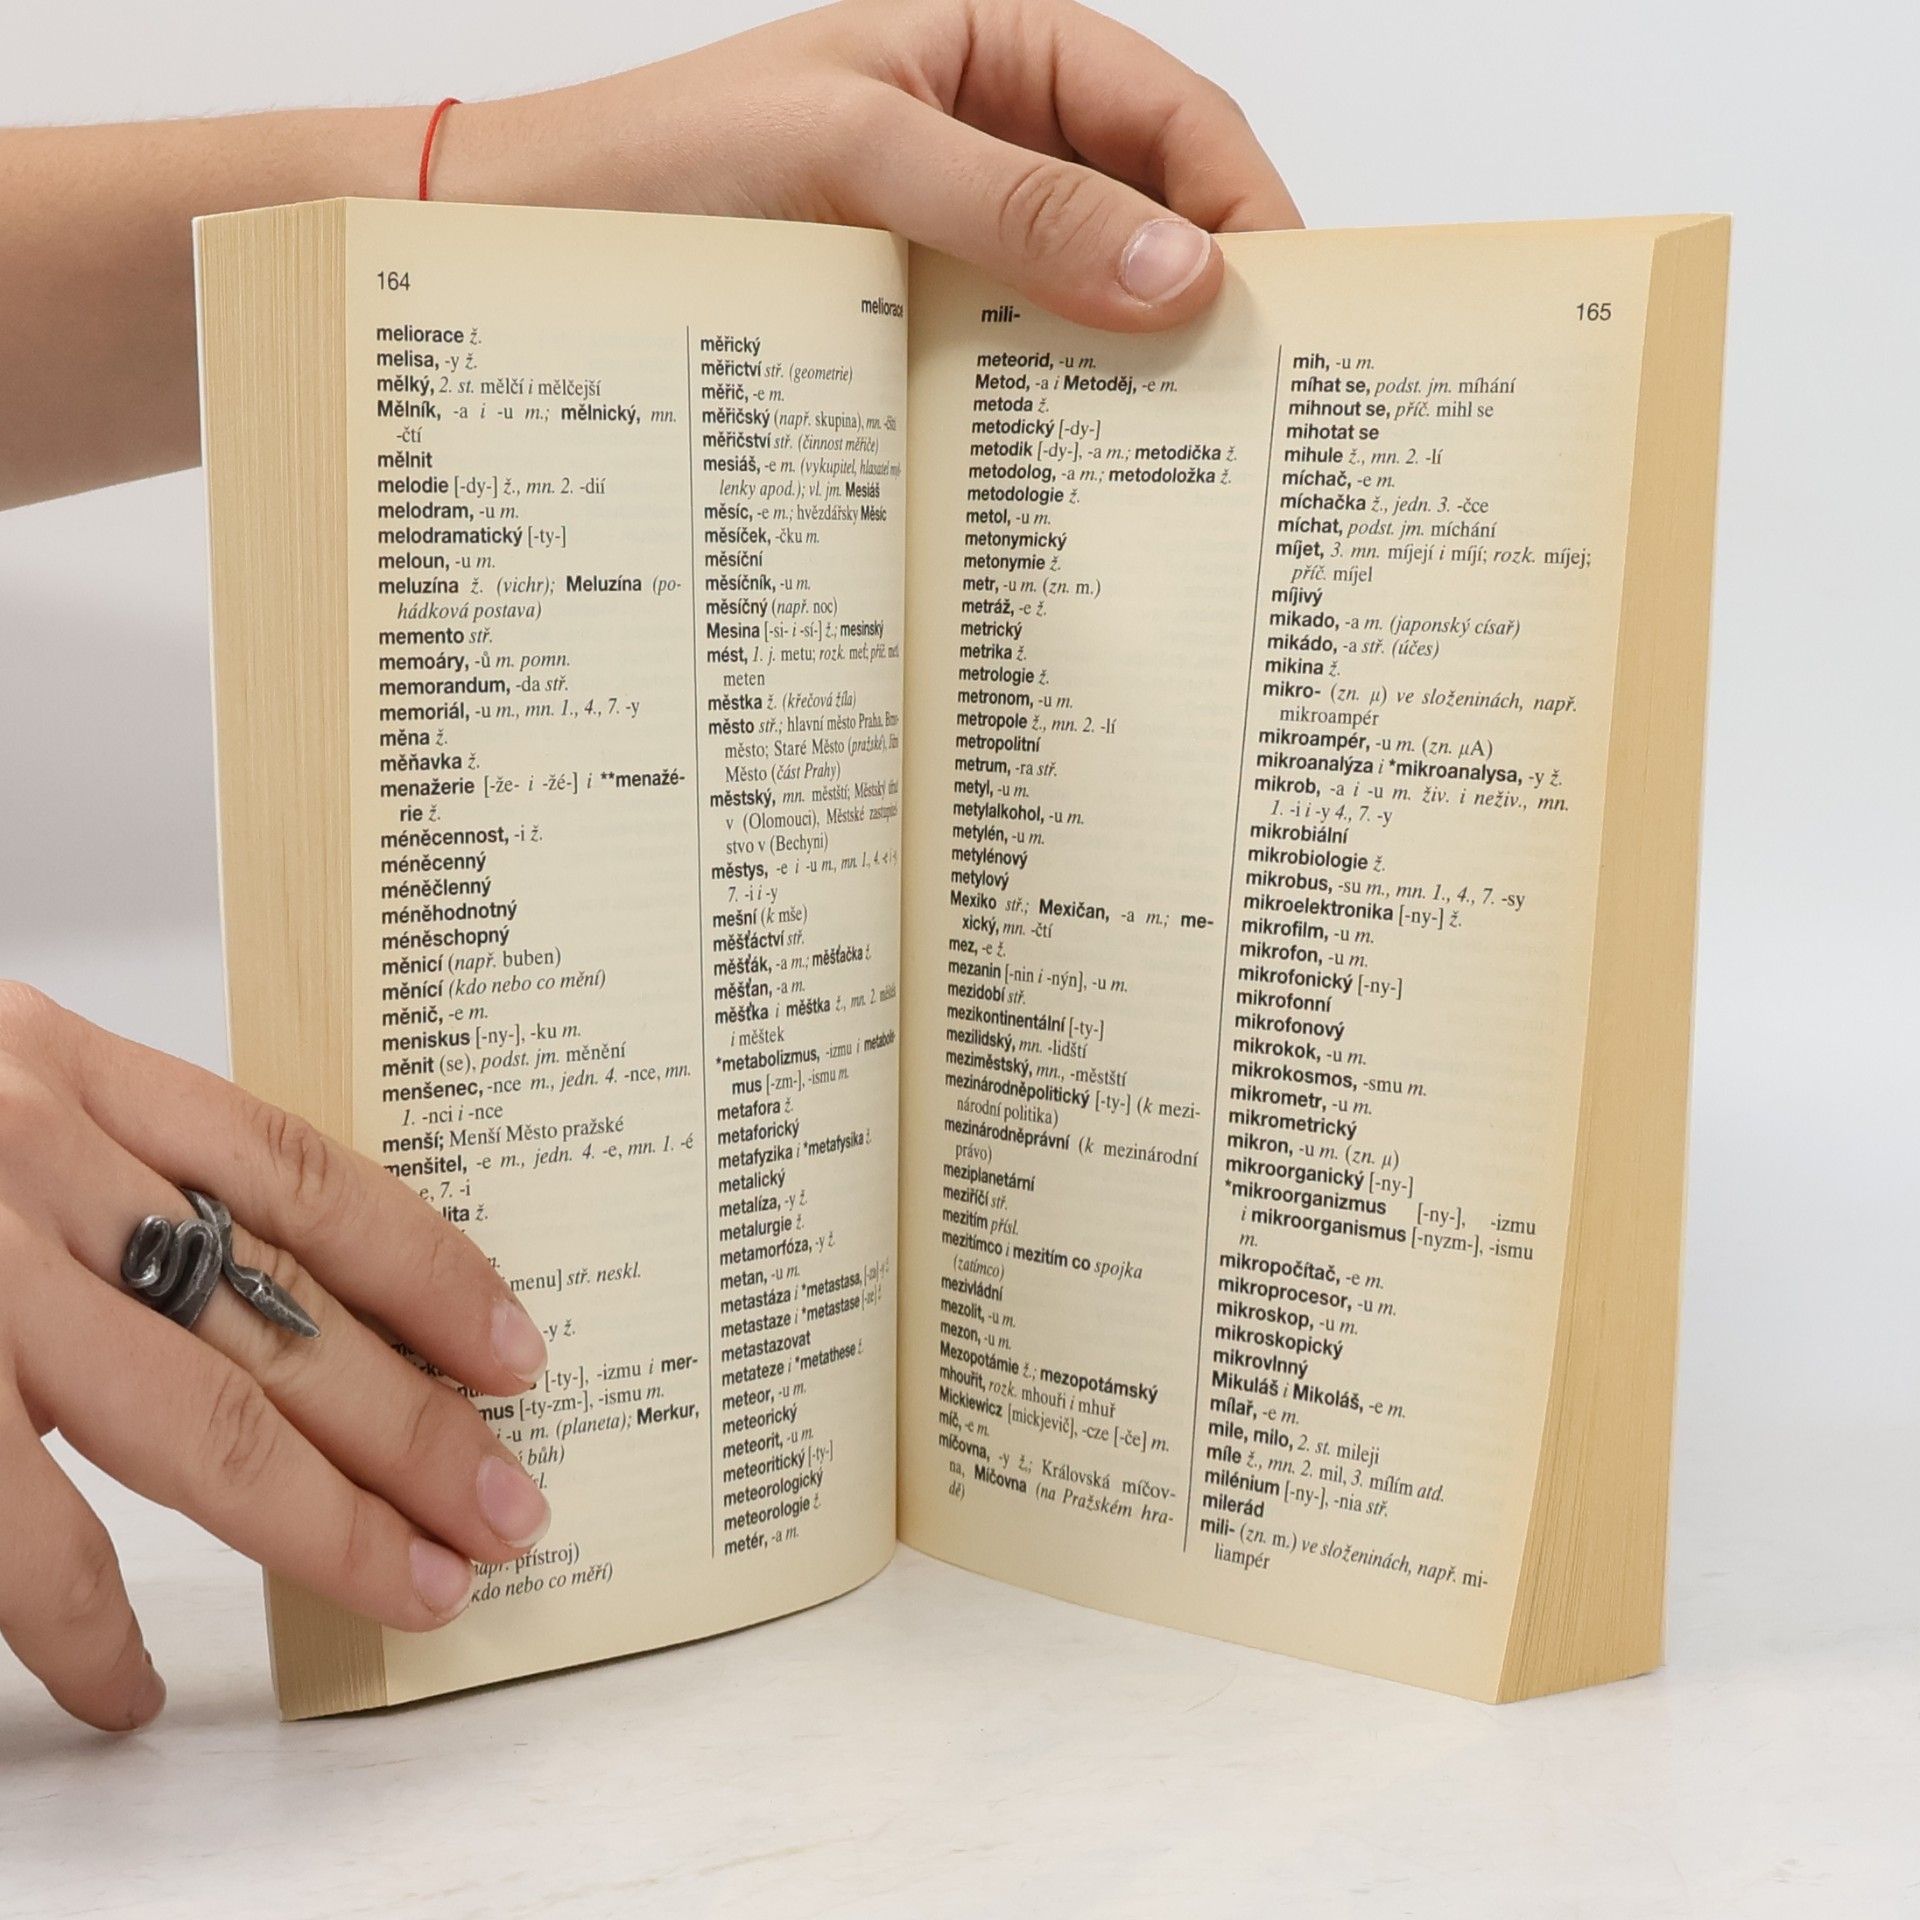 164
meliorace
meliorace ž.
melisa, -y ž.
mělký, 2. st. mělčí i mělčejší
Mělník, -a i -u m.; mělnický, mn.
-čtí
mělnit
melodie [-dy-] ž., mn. 2. -dií
melodram, -u m.
melodramatický [-ty-]
meloun, -u m.
meluzína ž. (vichr); Meluzína (po-
hádková postava)
memento stř.
memoáry, -ů m. pomn.
memorandum, -da stř.
memoriál, -u m., mn. 1., 4., 7. -y
měna ž.
měňavka ž.
menažerie [-že- i -žé-] i **menažé-
rie ž.
méněcennost, -i ž.
méněcenný
méněčlenný
méněhodnotný
méněschopný
měnicí (např. buben)
měnící (kdo nebo co mění)
měnič, -e m.
meniskus [-ny-], -ku m.
měnit (se), podst. jm. měnění
menšenec, -nce m., jedn. 4. -nce, mn.
1. -nci i -nce
menší; Menší Město pražské
menšitel, -e m., jedn. 4. -e, mn. 1. -é
-e, 7. -i
ž.
menu] stř. neskl.
-y ž.
[-ty-], -izmu i mer-
mus [-ty-zm-], -ismu m.
i -u m. (planeta); Merkur,
bůh)
přístroj)
kdo nebo co měří)
měřický
měřictví stř. (geometrie)
měřič, -e m.
měřičský (např. skupina), mn. -čští
měřičství stř. (činnost měřiče)
mesiáš, -e m. (vykupitel, hlasatel
lenky apod.); vl. jm. Mesiáš
měsíc, -e m.; hvězdářsky Měsíc
měsíček, -čku m.
měsíční
měsíčník, -u m.
měsíčný (např. noc)
Mesina [-si- i -sí-] ž.; mesinský
mést, 1. j. metu; rozk. meť; příč.
meten
městka ž. (křečová žíla)
město stř.; hlavní město Praha,
město; Staré Město (pražské),
Město (část Prahy)
městský, mn. městští; Městský
v (Olomouci), Městské zastupitel-
stvo v (Bechyni)
městys, -e i -u m., mn. 1., 4.
7. -i i -y
mešní (k mše)
měšťáctví stř.
měšťák, -a m.; měšťačka ž.
měšťan, -a m.
měšťka i měštka ž., mn. 2.
i měštek
*metabolizmus, -izmu i metabolis-
mus [-zm-], -ismu m.
metafora ž.
metaforický
metafyzika i *metafysika ž.
metalický
metalíza, -y ž.
metalurgie ž.
metamorfóza, -y ž.
metan, -u m.
metastáza i *metastasa, [-za] -y ž.
metastaze i *metastase [-ze] ž.
metastazovat
metateze i *metathese ž.
meteor, -u m.
meteorický
meteorit, -u m.
meteoritický [-ty-]
meteorologický
meteorologie ž.
metér, -a m.
mili-
165
meteorid, -u m.
Metod, -a i Metoděj, -e m.
metoda ž.
metodický [-dy-]
metodik [-dy-], -a m.; metodička ž.
metodolog, -a m.; metodoložka ž.
metodologie ž.
metol, -u m.
metonymický
metonymie ž.
metr, -u m. (zn. m.)
metráž, -e ž.
metrický
metrika ž.
metrologie ž.
metronom, -u m.
metropole ž., mn. 2. -lí
metropolitní
metrum, -ra stř.
metyl, -u m.
metylalkohol, -u m.
metylén, -u m.
metylénový
metylový
Mexiko stř.; Mexičan, -a m.; me-
xický, mn. -čtí
mez, -e ž.
mezanin [-nin i -nýn], -u m.
mezidobí stř.
mezikontinentální [-ty-]
mezilidský, mn. -lidští
meziměstský, mn., -městští
mezinárodněpolitický [-ty-] (k mezi-
národní politika)
mezinárodněprávní (k mezinárodní
právo)
meziplanetární
meziříčí stř.
mezitím přísl.
mezitímco i mezitím co spojka
(zatímco)
mezivládní
mezolit, -u m.
mezon, -u m.
Mezopotámie ž.; mezopotámský
mhouřit, rozk. mhouři i mhuř
Mickiewicz [mickjevič], -cze [-če] m.
míč, -e m.
míčovna, -y ž.; Královská míčov-
na, Míčovna (na Pražském hra-
dě)
mih, -u m.
míhat se, podst. jm. míhání
mihnout se, příč. mihl se
mihotat se
mihule ž., mn. 2. -lí
míchač, -e m.
míchačka ž., jedn. 3. -čce
míchat, podst. jm. míchání
míjet, 3. mn. míjejí i míjí; rozk. míjej;
příč. míjel
míjivý
mikado, -a m. (japonský císař)
mikádo, -a stř. (účes)
mikina ž.
mikro- (zn. μ) ve složeninách, např.
mikroampér
mikroampér, -u m. (zn. μA)
mikroanalýza i *mikroanalysa, -y ž.
mikrob, -a i -u m. živ. i neživ., mn.
1. -i i -y 4., 7. -y
mikrobiální
mikrobiologie ž.
mikrobus, -su m., mn. 1., 4., 7. -sy
mikroelektronika [-ny-] ž.
mikrofilm, -u m.
mikrofon, -u m.
mikrofonický [-ny-]
mikrofonní
mikrofonový
mikrokok, -u m.
mikrokosmos, -smu m.
mikrometr, -u m.
mikrometrický
mikron, -u m. (zn. μ)
mikroorganický [-ny-]
*mikroorganizmus [-ny-], -izmu
i mikroorganismus [-nyzm-], -ismu
m.
mikropočítač, -e m.
mikroprocesor, -u m.
mikroskop, -u m.
mikroskopický
mikrovlnný
Mikuláš i Mikoláš, -e m.
mílař, -e m.
mile, milo, 2. st. mileji
míle ž., mn. 2. mil, 3. mílím atd.
milénium [-ny-], -nia stř.
milerád
mili- (zn. m.) ve složeninách, např. mi-
liampér